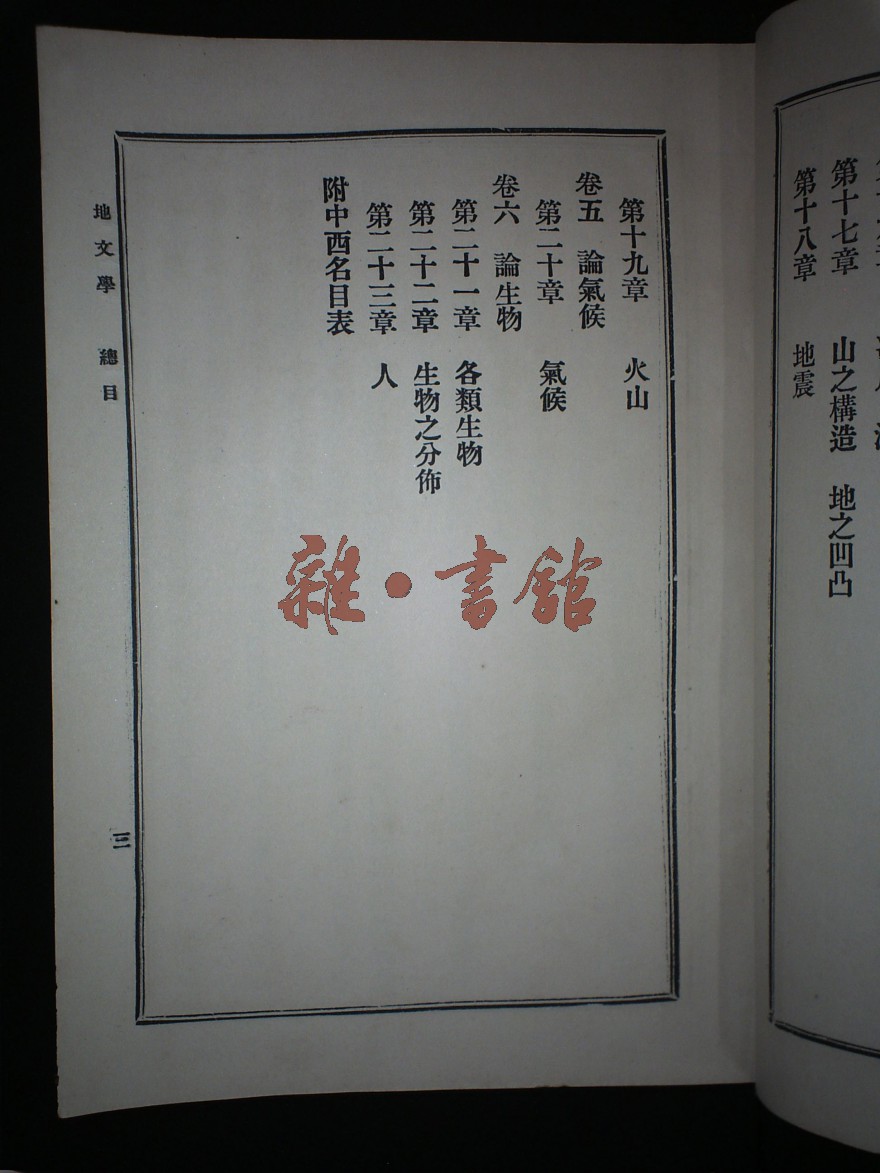 第十七章　山之構造　地之凹凸
第十八章　地震
第十九章　火山
卷五　論氣候
第二十章　氣候
卷六　論生物
第二十一章　各類生物
第二十二章　生物之分佈
第二十三章　人
附中西名目表
地文學　總目
三
雜·書館